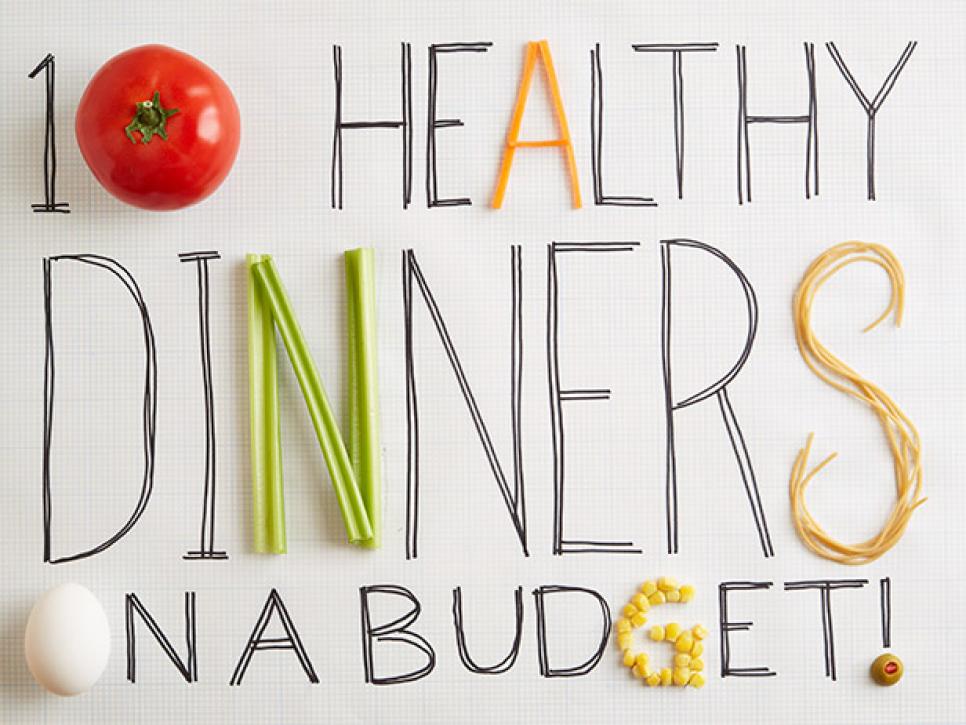 10 HEALTHY
DINNERS
ON A BUDGET!